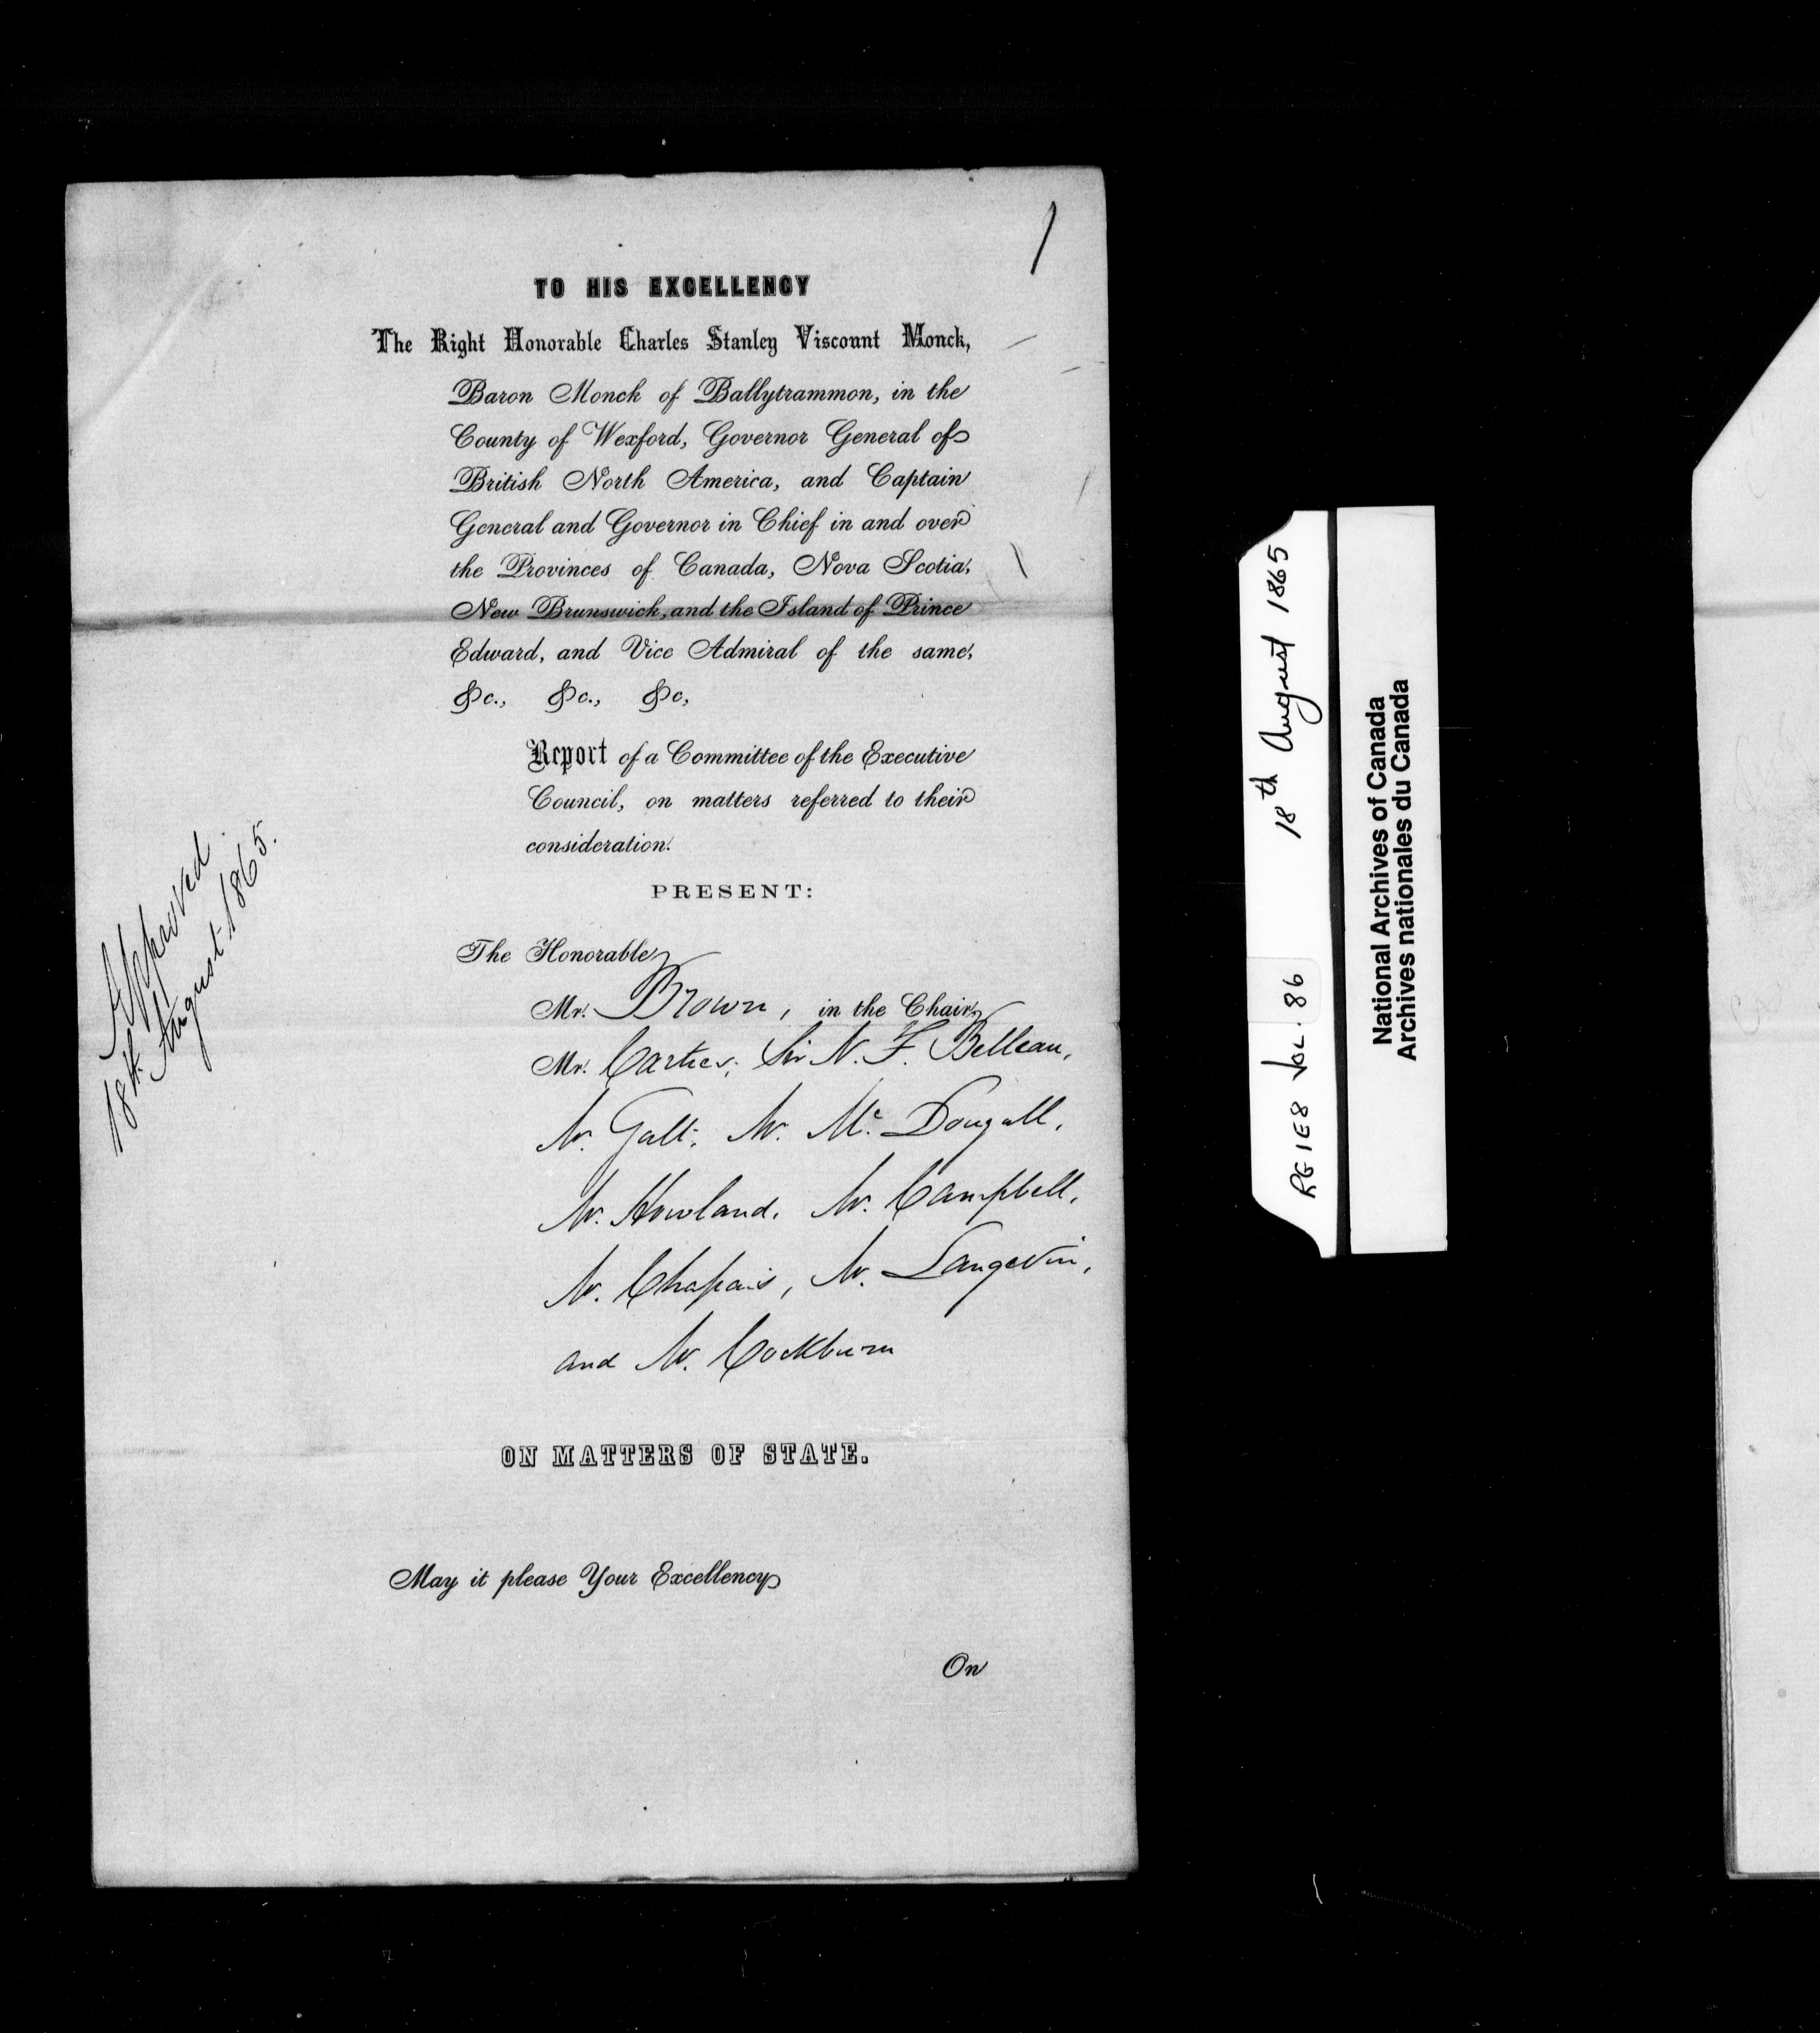 TO HIS EXCELLENCY
The Right Honorable Charles Stanley Viscount Monck,
Baron Monck of Ballytrammon, in the
County of Wexford, Governor General of
British North America, and Captain
General and Governor in Chief in and over
the Provinces of Canada, Nova Scotia,
New Brunswick, and the Island of Prince
Edward, and Vice Admiral of the same,
&c., &c., &c,
Report of a Committee of the Executive
Council, on matters referred to their
consideration.
PRESENT:
The Honorable
Mr. Brown, in the Chair,
Mr. Cartier, Sir N. F. Belleau,
Mr. Galt, Mr. McDougall,
Mr. Howland, Mr. Campbell,
Mr. Chapais, Mr. Langevin,
and Mr. Cockburn
ON MATTERS OF STATE.
May it please Your Excellency
On
Approved
18th August 1865.
RG 1 E8 Vol. 86 18th August 1865
National Archives of Canada
Archives nationales du Canada